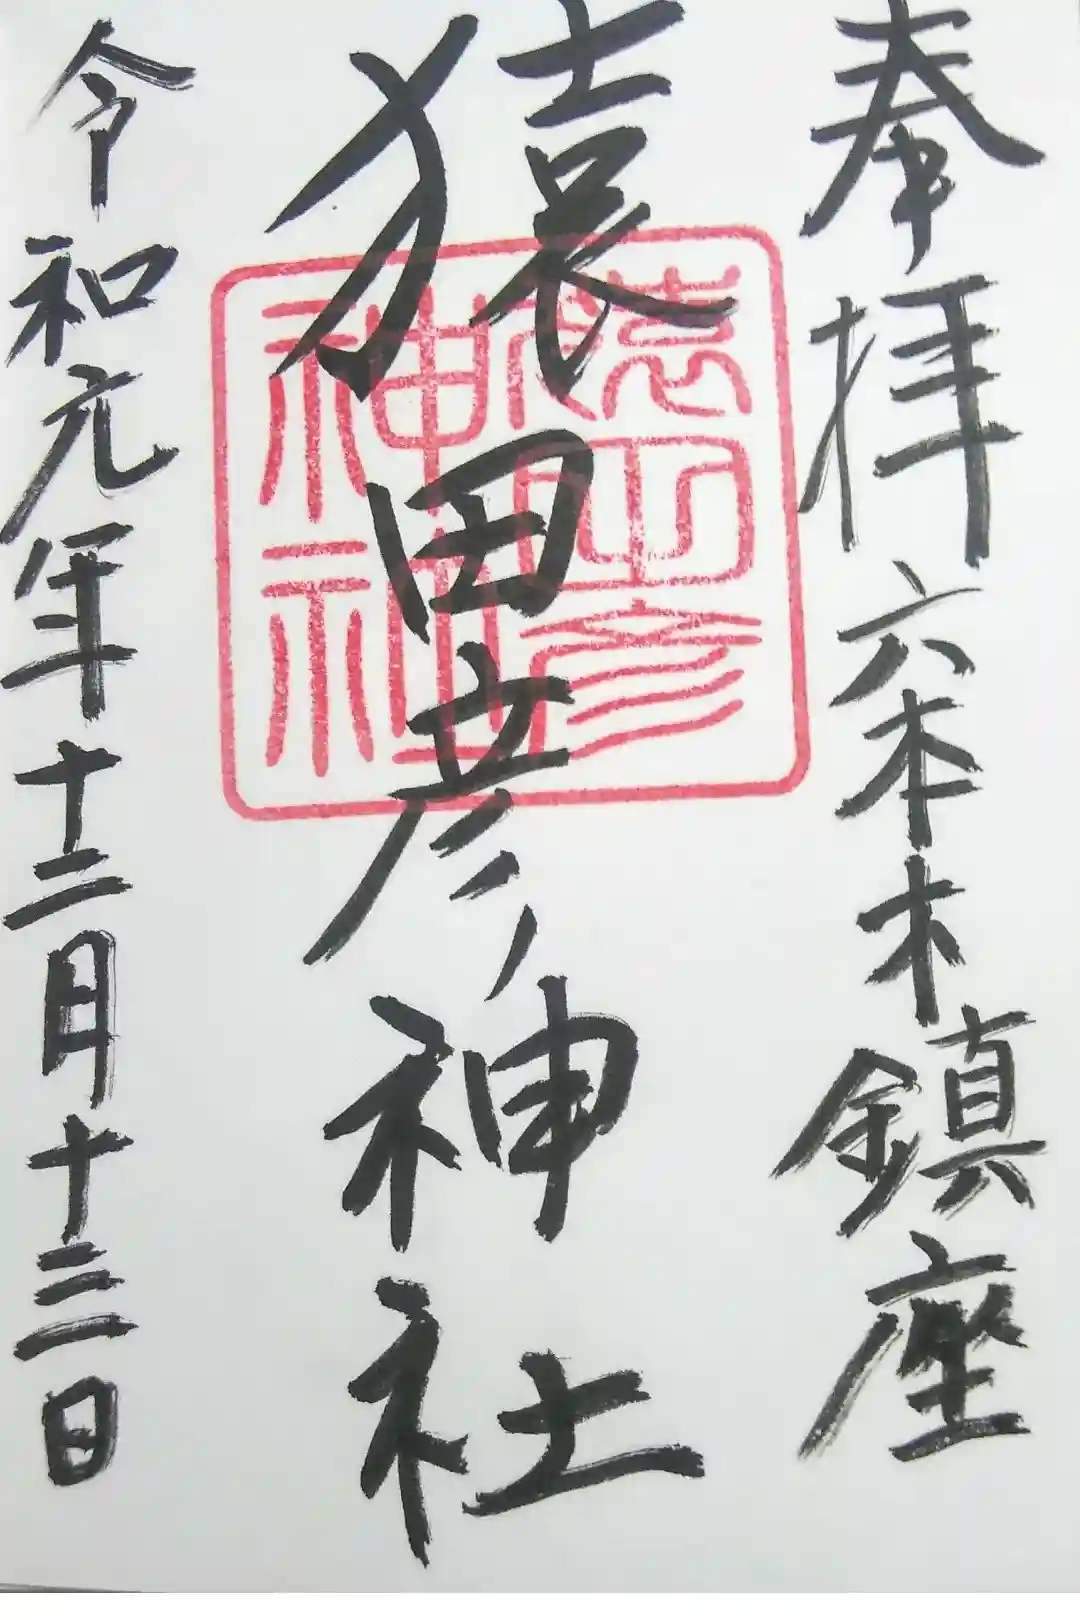 奉拝 六本木鎮座
猿田彦神社
令和元年十二月十三日
猿田彦
神社神